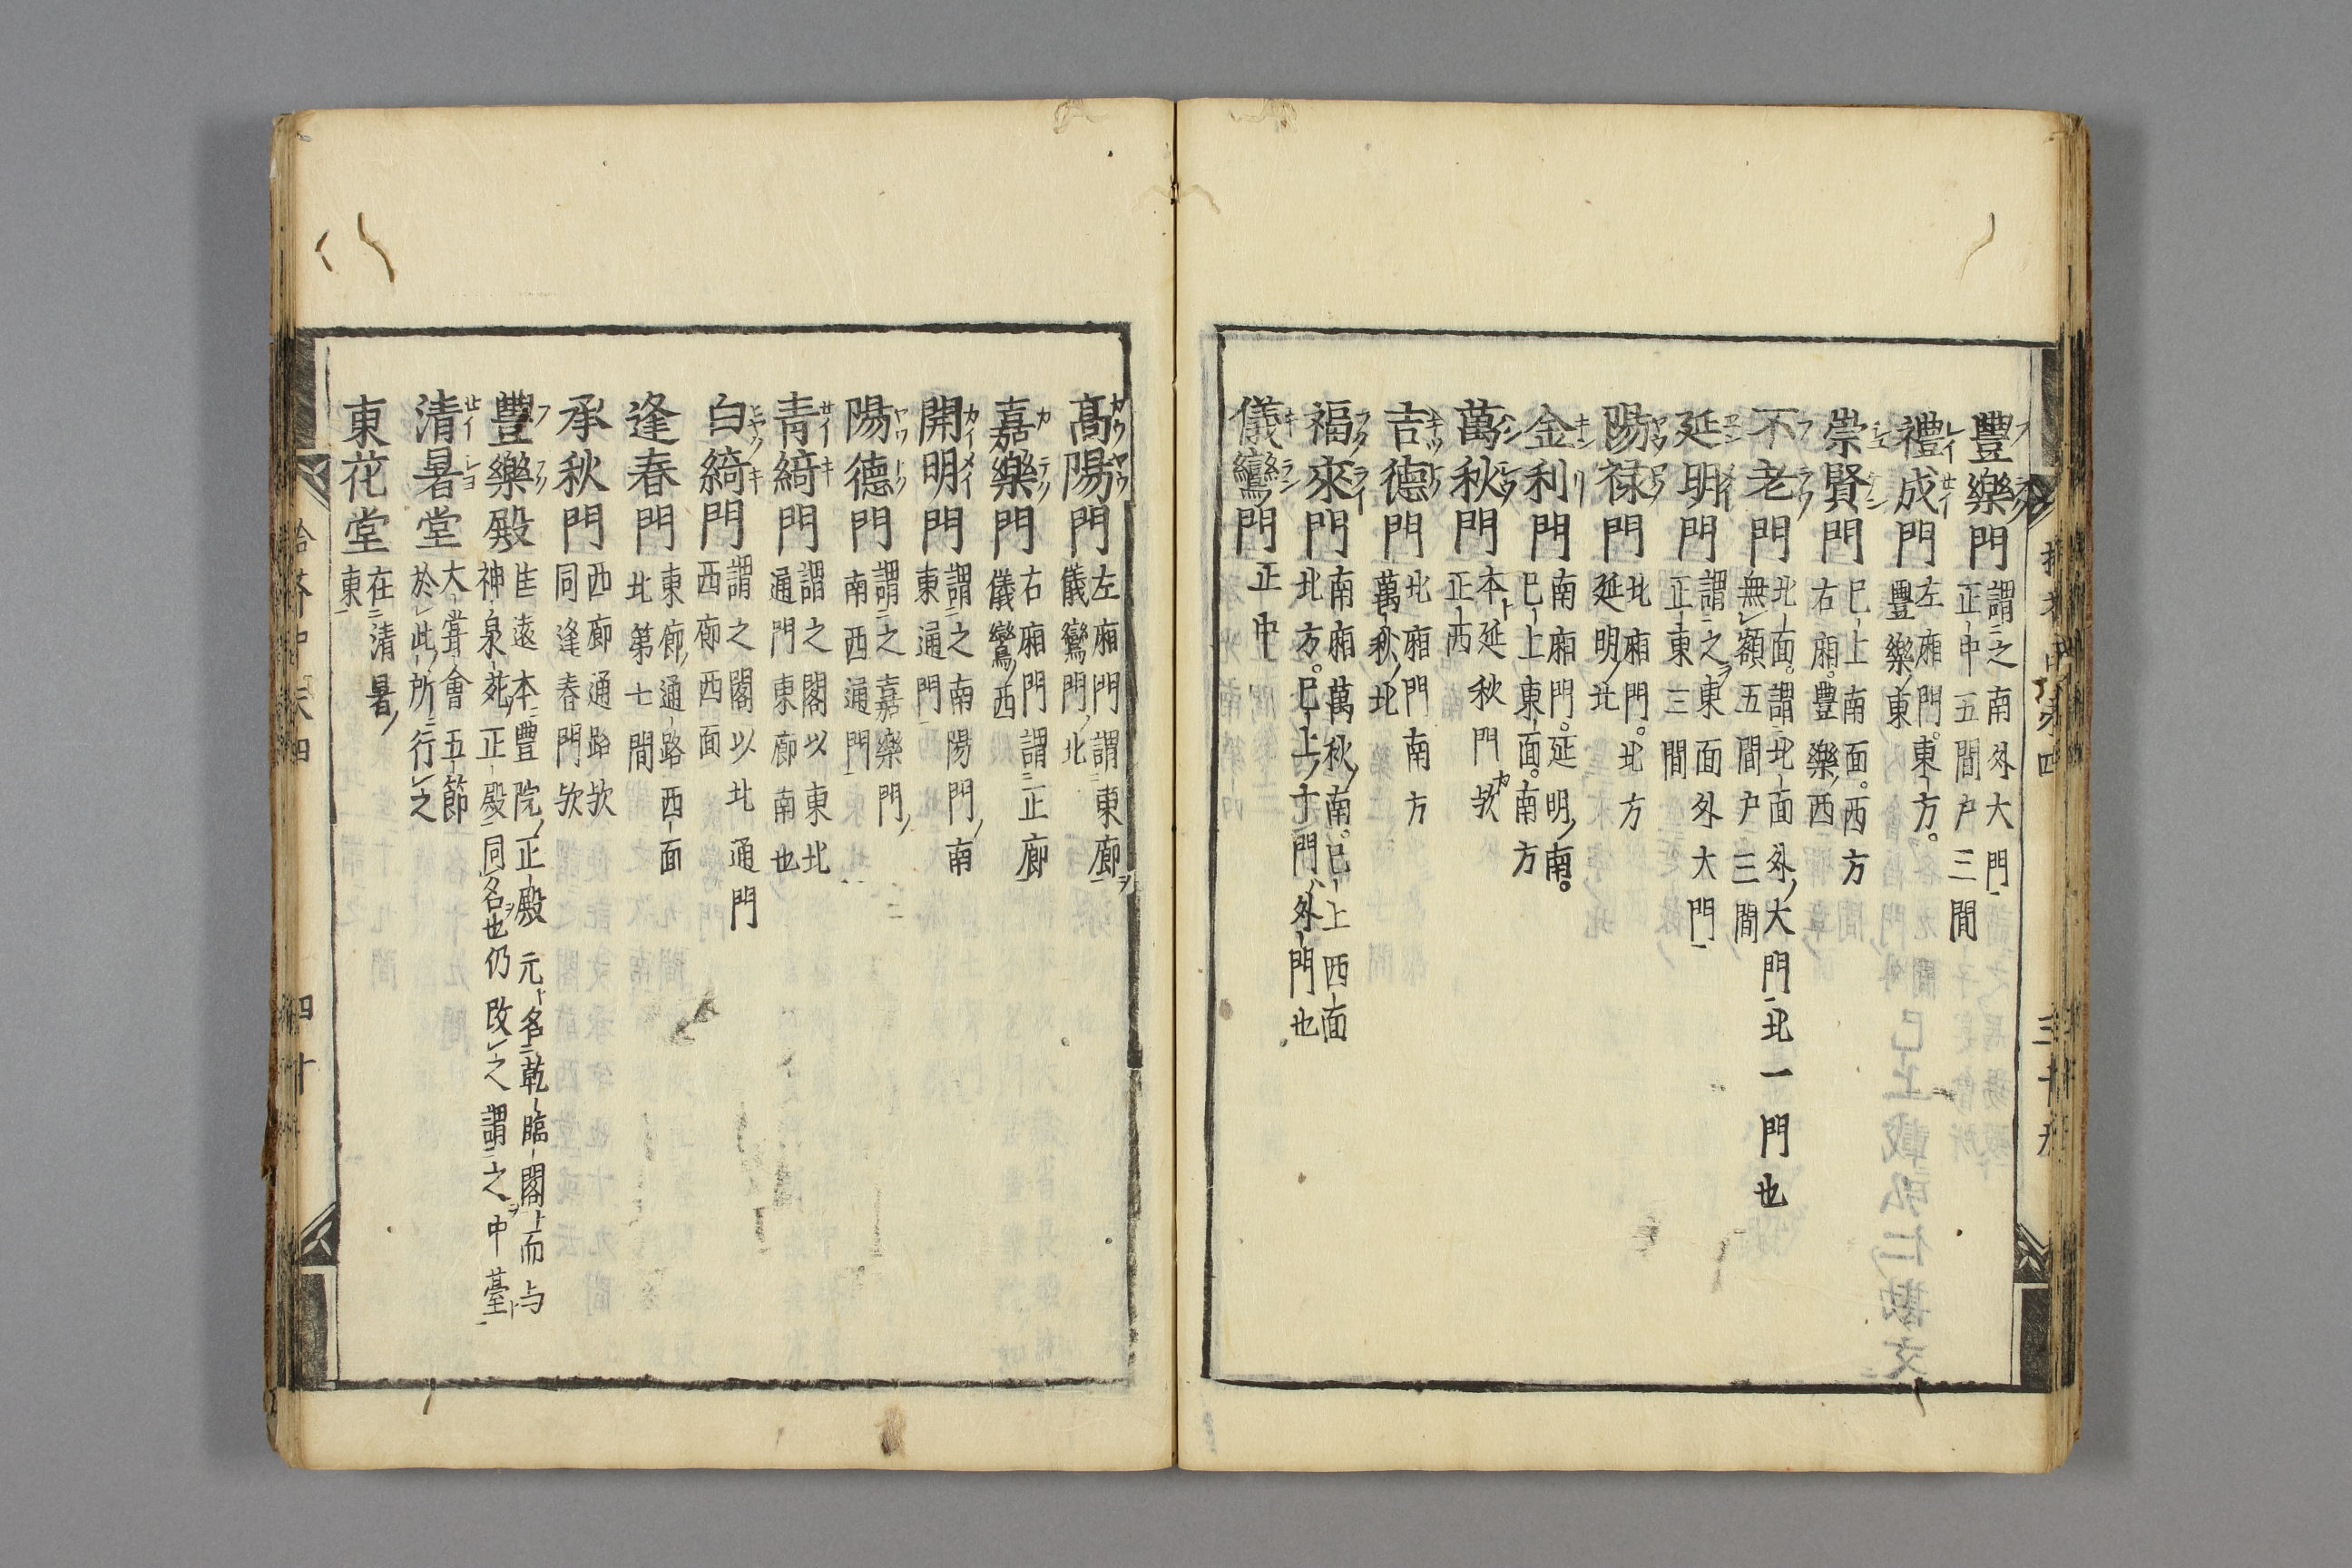 豐樂門 謂之南外大門
正中五間戸三間
禮成門 左廂門。東方。
豐樂東
崇賢門 巳上南面。西方
右廂。豐樂西
不老門 北面。謂北面外大門北一門也
無額五間戸三間
延明門 謂之東面外大門
正東三間
陽禄門 北廂門。北方
延明北
金利門 南廂門。延明南。
巳上東面。南方
萬秋門 本延秋門欤
正西
吉德門 北廂門南方
萬秋北
福來門 南廂萬秋南。巳上西面
北方。巳上方門外門也
儀鸞門 正中
高陽門 左廂門謂東廊
儀鸞門北
嘉樂門 右廂門謂正廊
儀鸞西
開明門 謂之南陽門南
東通門
陽德門 謂之嘉樂門
南西通門
青綺門 謂之閣以東北
通門東廊南也
白綺門 謂之閣以北通門
西廊西面
逢春門 東廊通路西面
北第七間
承秋門 西廊通路欤
同逢春門欤
豐樂殿 遠本豐院正殿元名乾臨閣而与
神泉苑正殿同名也仍改之謂之中臺
清暑堂 大嘗會五節
於此所行之
東花堂 在清暑
東
四十